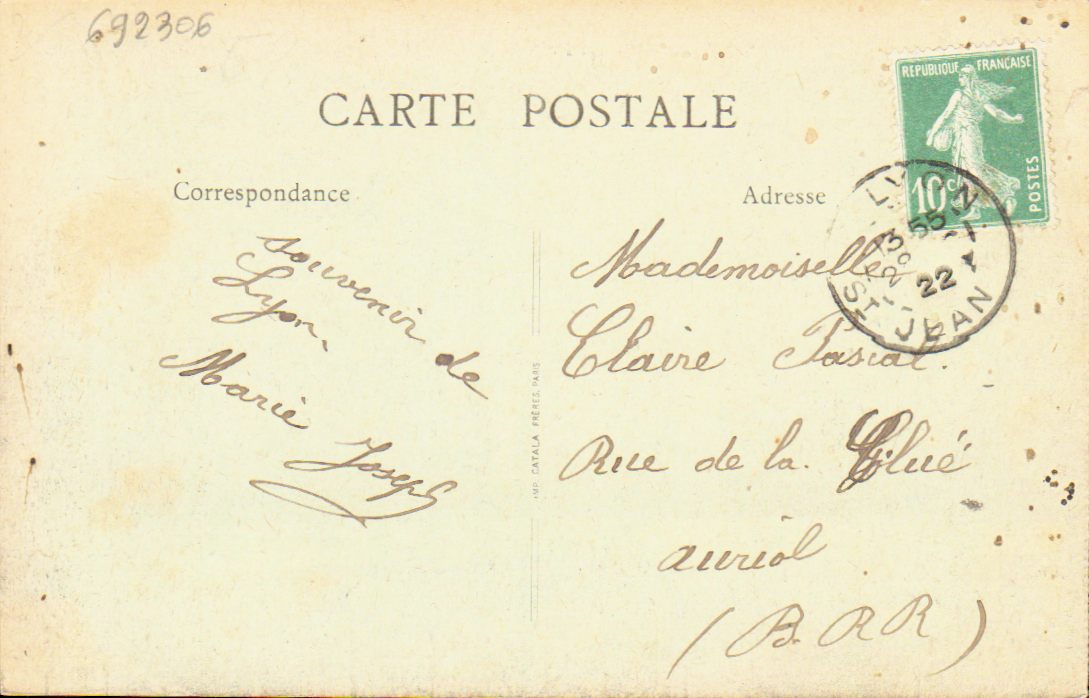 692306
CARTE POSTALE
REPUBLIQUE FRANÇAISE
10c
POSTES
LYON
ST JEAN
22
Correspondance
souvenir de
Lyon,
Marie
Joseph
IMP. CATALA FRÈRES, PARIS
Adresse
Mademoiselle
Claire Pascal.
Rue de la. Clué
auriol
(B. R R)